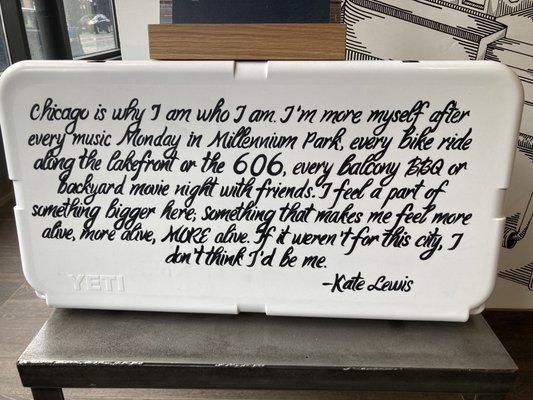 Chicago is why I am who I am. I'm more myself after
every music Monday in Millennium Park, every bike ride
along the lakefront or the 606, every balcony BBQ or
backyard movie night with friends. I feel a part of
something bigger here; something that makes me feel more
alive, more alive, MORE alive. If it weren't for this city, I
don't think I'd be me.
-Kate Lewis
YETI